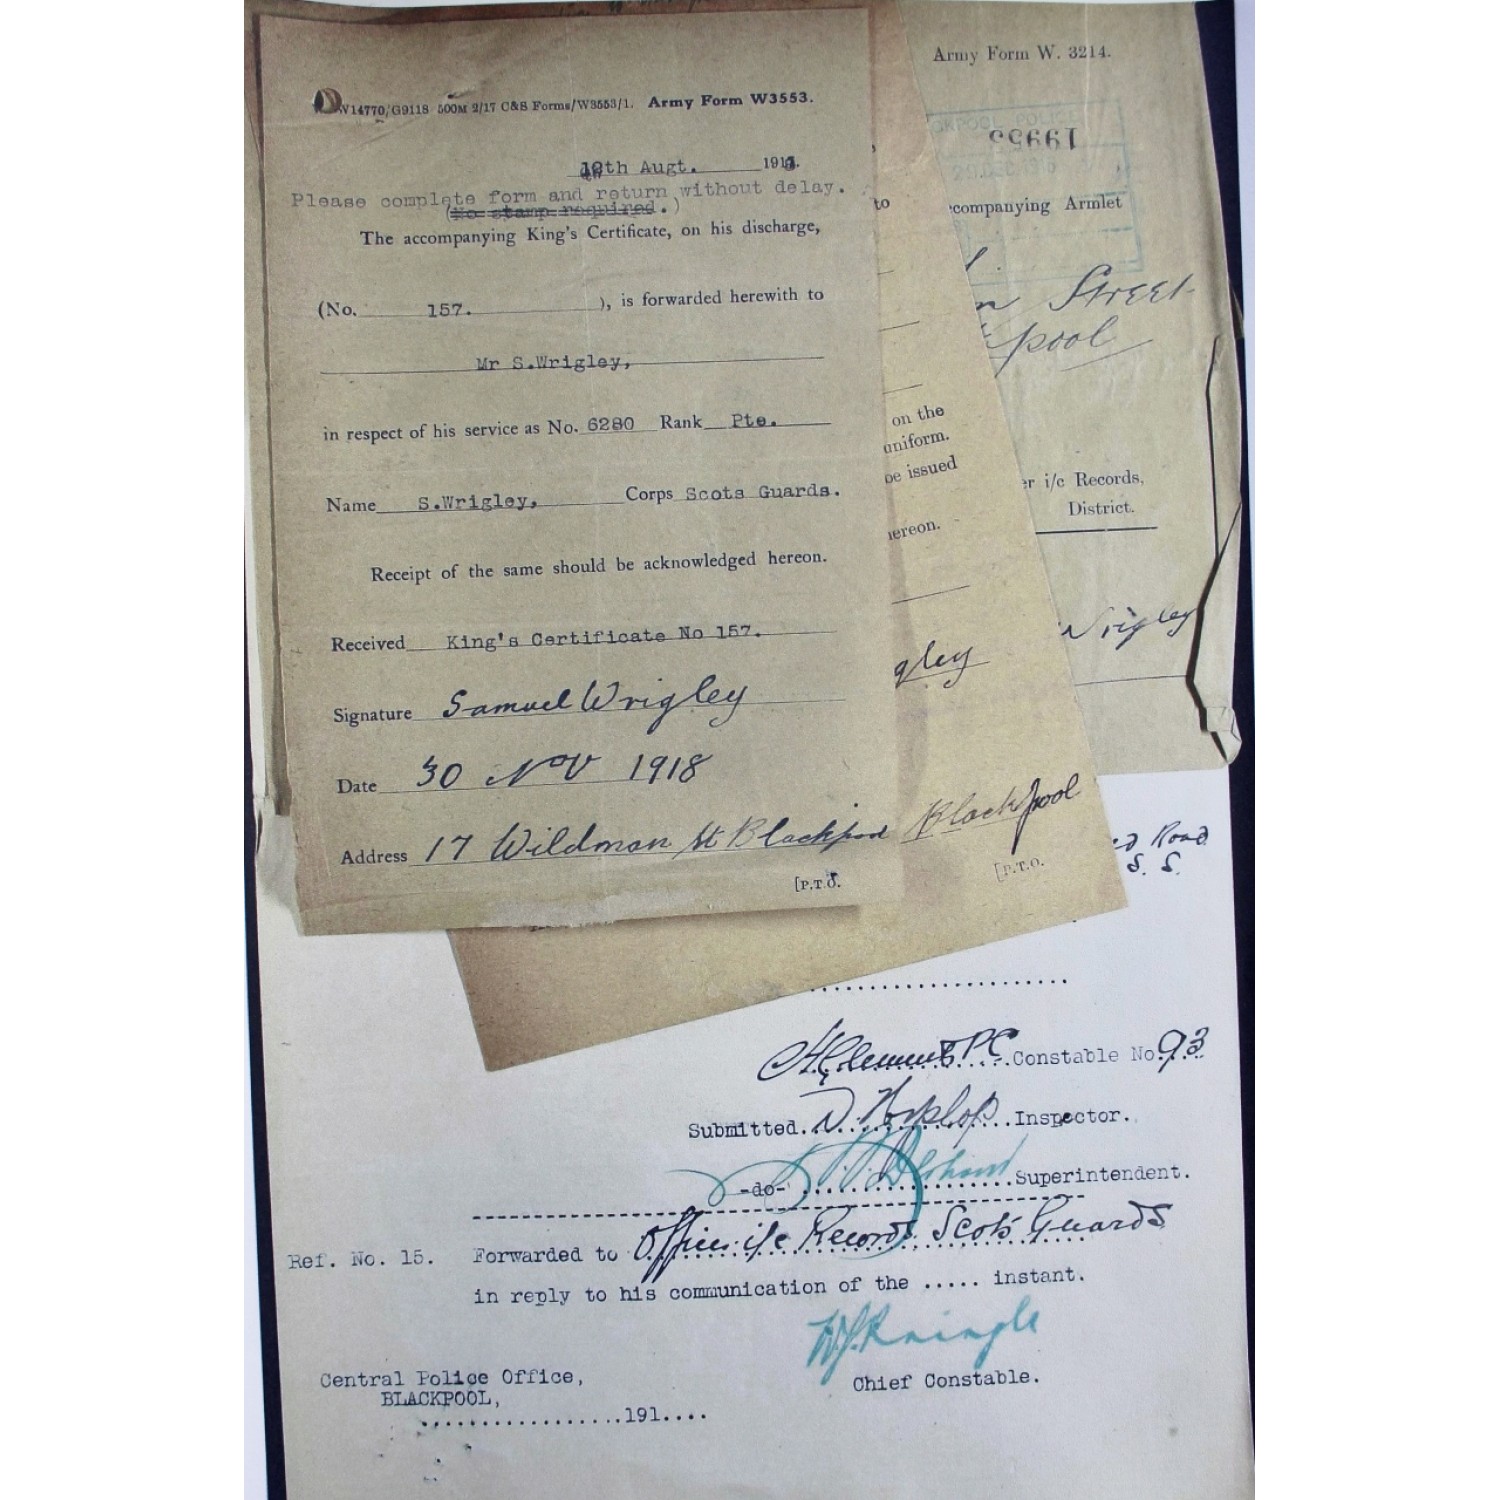 W14770/G9118 500M 2/17 C&S Forms/W3553/1. Army Form W3553.
th Augt. 191
Please complete form and return without delay.
(No stamp required.)
The accompanying King's Certificate, on his discharge,
(No. 157. ), is forwarded herewith to
Mr S.Wrigley,
in respect of his service as No. 6280 Rank Pte.
Name S.Wrigley, Corps Scots Guards.
Receipt of the same should be acknowledged hereon.
Received King's Certificate No 157.
Signature Samuel Wrigley
Date 30 Nov 1918
Address 17 Wildman St Blackpool
[P.T.O.
to
on the
uniform.
be issued
hereon.
gley
Blackpool
[P.T.O.
Army Form W. 3214.
POLICE
19955
companying Armlet
Street
pool
er i/c Records,
District.
Wrigley
Road
S. S.
H. Clement P.C. Constable No. 93
Submitted. D. Inspector.
-do- Superintendent.
Ref. No. 15. Forwarded to Officer i/c Records Scots Guards
in reply to his communication of the ..... instant.
Chief Constable.
Central Police Office,
BLACKPOOL,
..................191....